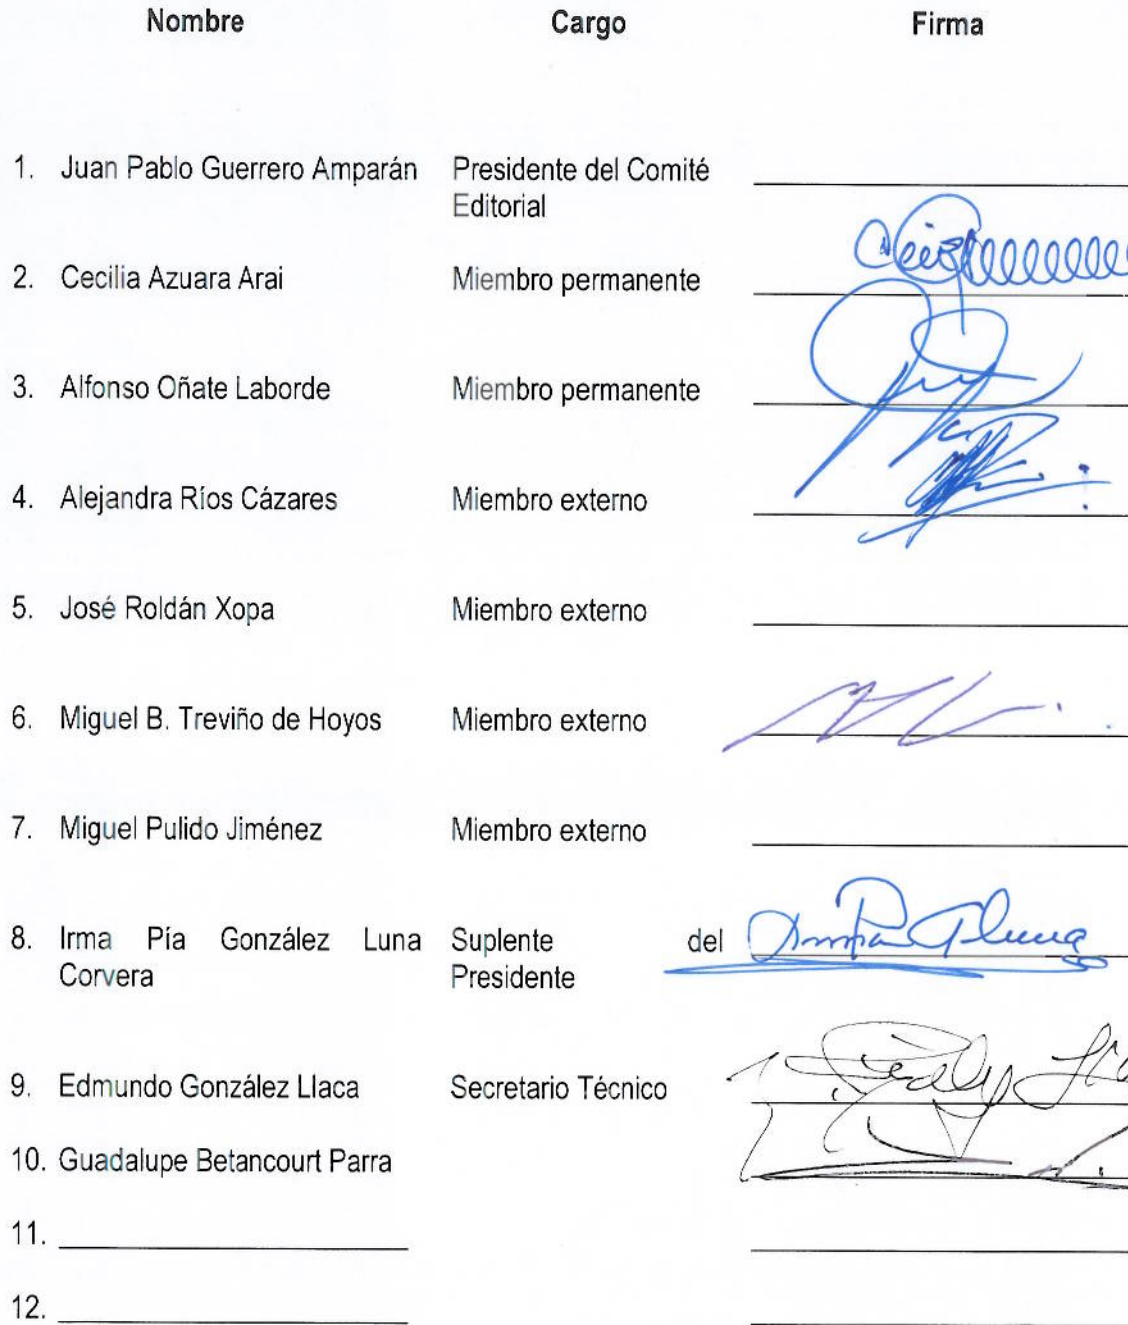 Nombre Cargo Firma
1. Juan Pablo Guerrero Amparán Presidente del Comité
Editorial
2. Cecilia Azuara Arai Miembro permanente
3. Alfonso Oñate Laborde Miembro permanente
4. Alejandra Ríos Cázares Miembro externo
5. José Roldán Xopa Miembro externo
6. Miguel B. Treviño de Hoyos Miembro externo
7. Miguel Pulido Jiménez Miembro externo
8. Irma Pía González Luna Suplente del
Corvera Presidente
9. Edmundo González Llaca Secretario Técnico
10. Guadalupe Betancourt Parra
11.
12.